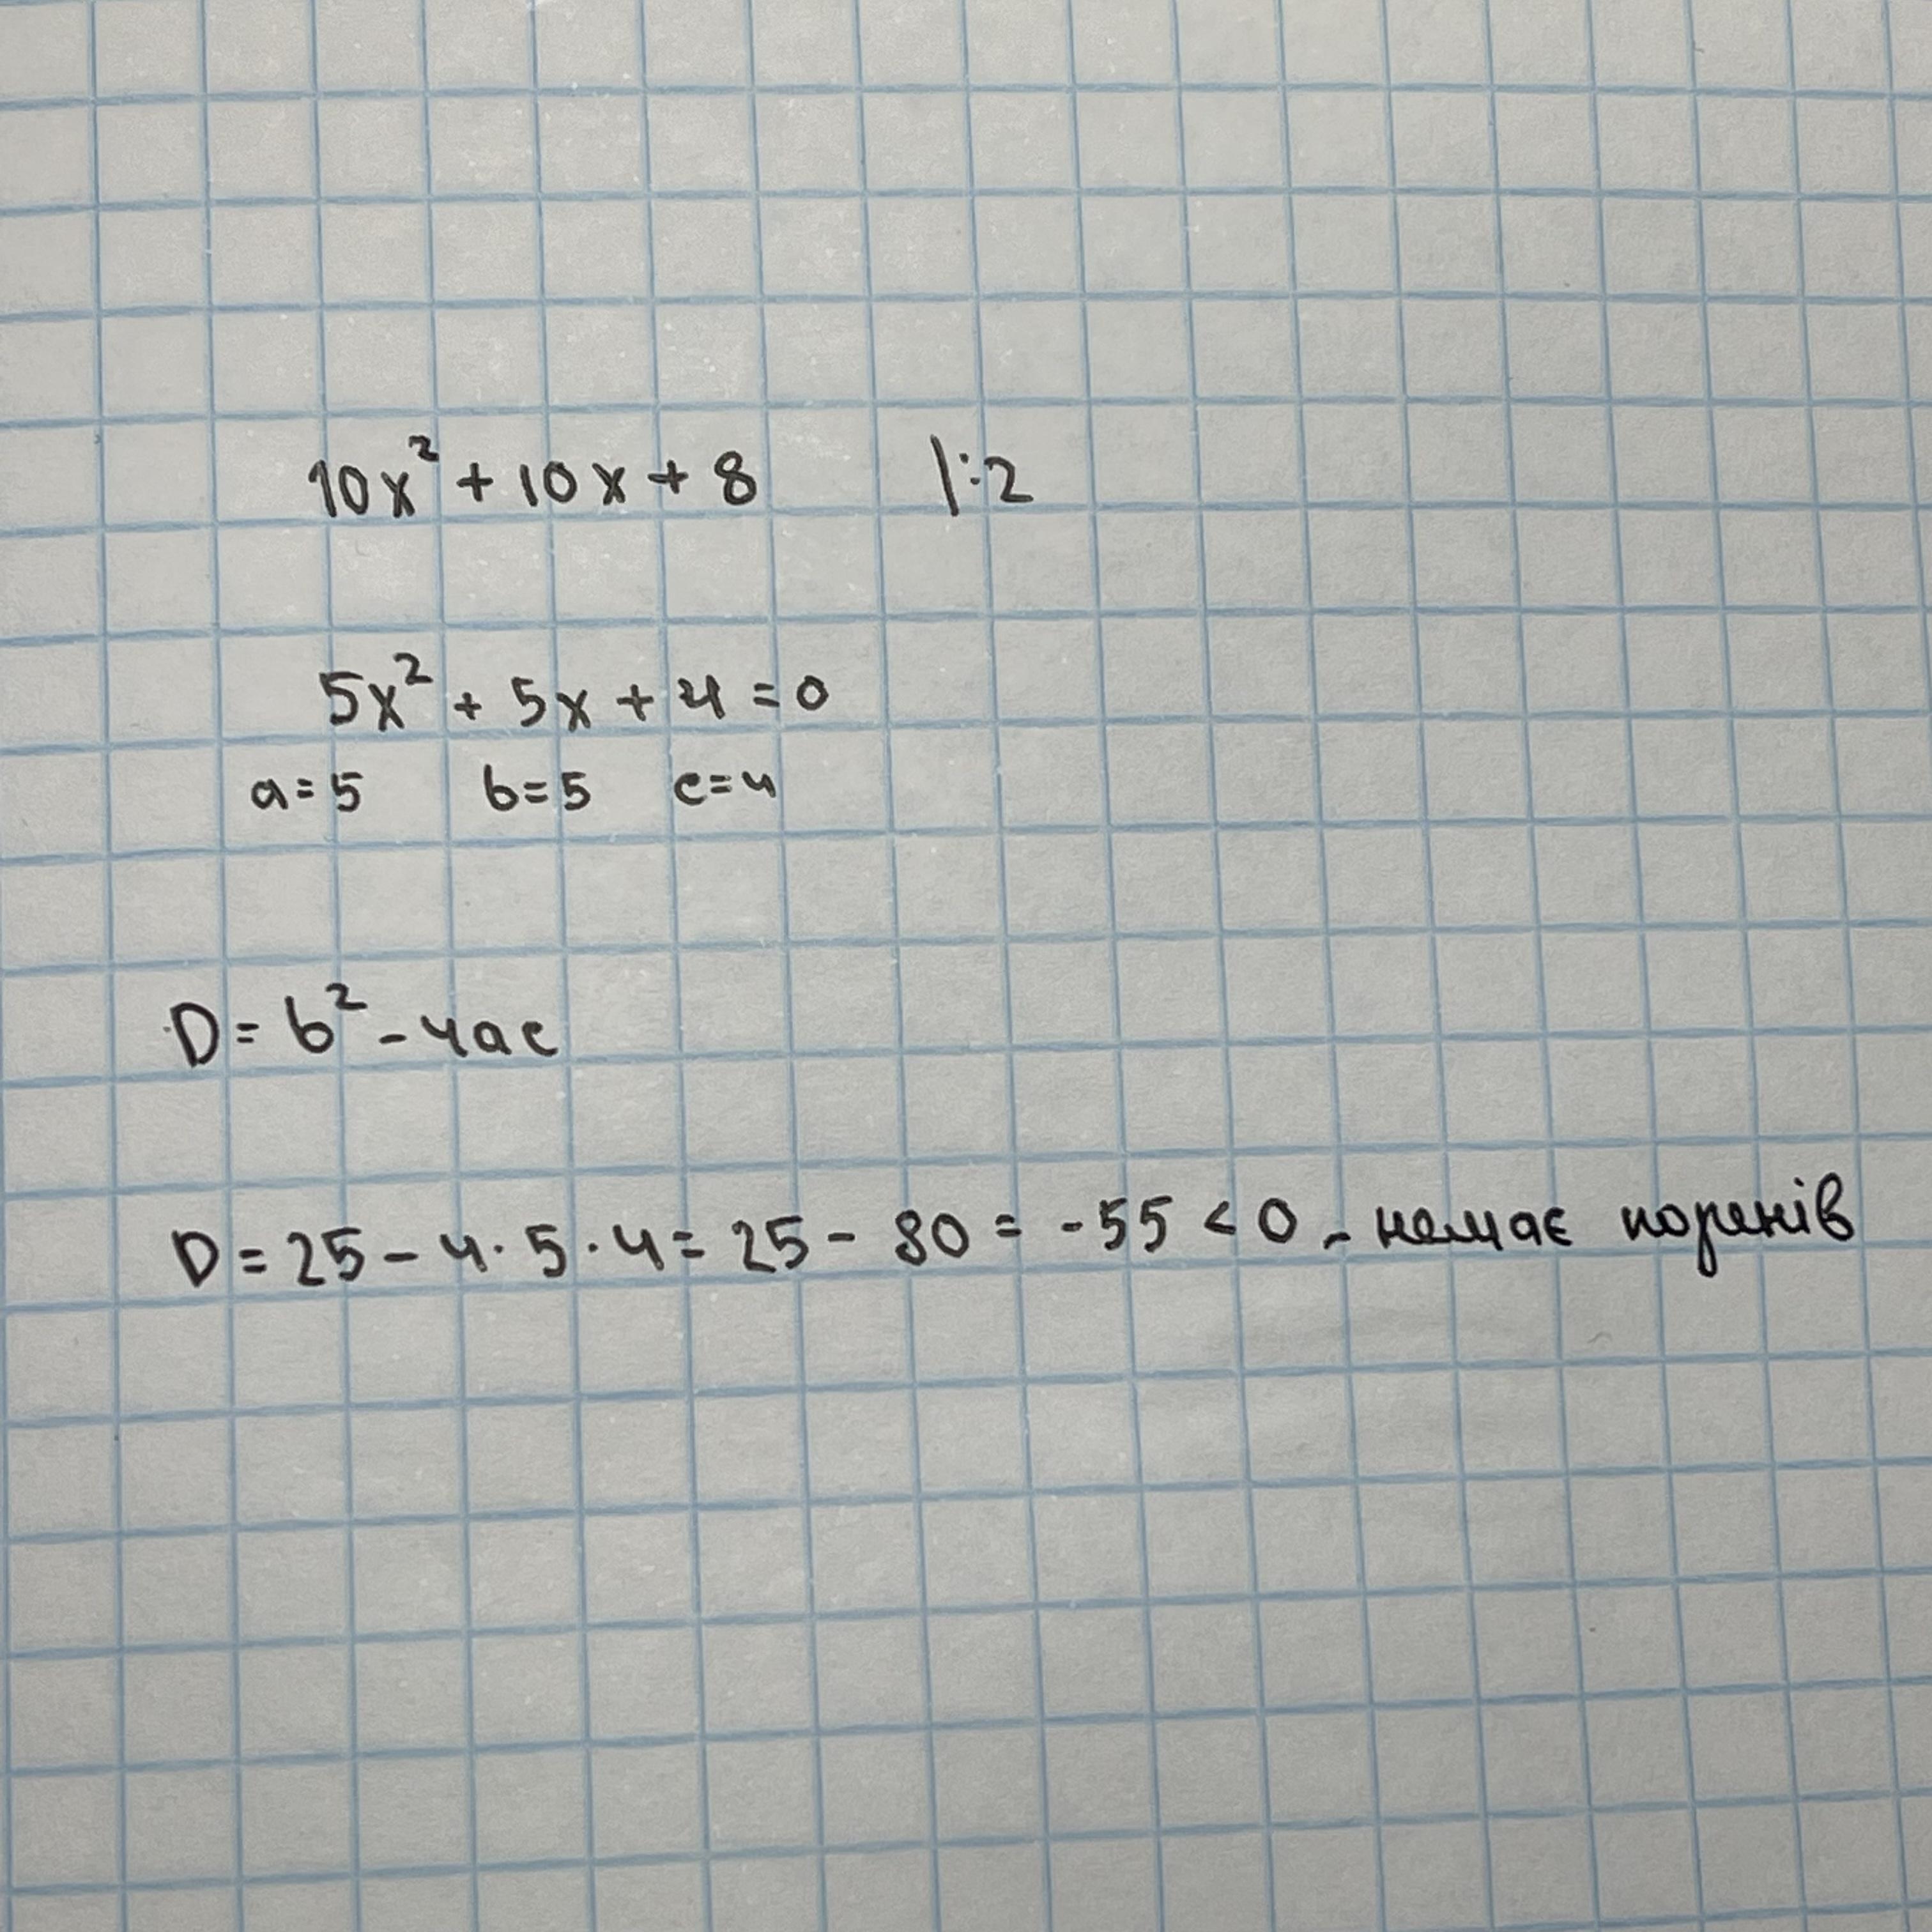 10x² + 10x + 8 |:2
5x² + 5x + 4 = 0
a = 5 b = 5 c = 4
D = b² - 4ac
D = 25 - 4 · 5 · 4 = 25 - 80 = -55 < 0 - немає коренів